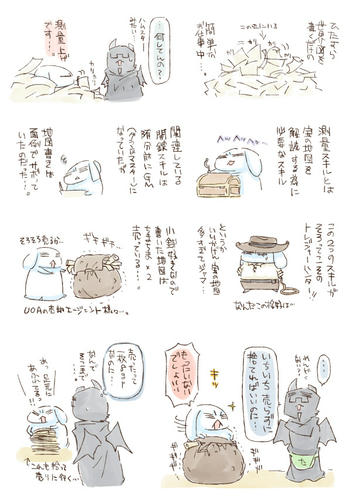 ひたすら
世界図を
書くだけの
簡単な
お仕事中…
この辺にいる
…何してんの？
ハムスター
みたい…
測量上げ
です…。
測量スキルとは
宝の地図を
解読する為に
必要なスキル
関連している
開錠スキルは
随分前にGM
(グランドマスター)に
なっていたが
地図書きは
面倒でサボって
いたのだが…
この2つのスキルが
そろってこその
トレジャーハンター!!
なんだこの格好は…
というか
いいかげん宝の地図
多すぎてジャマ…
小銭好きなので
書いた地図は
ちまちま×2
売っている…。
そろそろ売るか…
ギギギ…
UOAの売却エージェント様っ…。
・・・。
れんだーさい？
いちいち売らずに
捨てればいいのに…
た
キッ
もったいない
でしょ!!
売たって
一枚8gp
なのに…
なんで
そこまで…
あっ宝に
あふれてる!!
これも拾って
売りに行く…